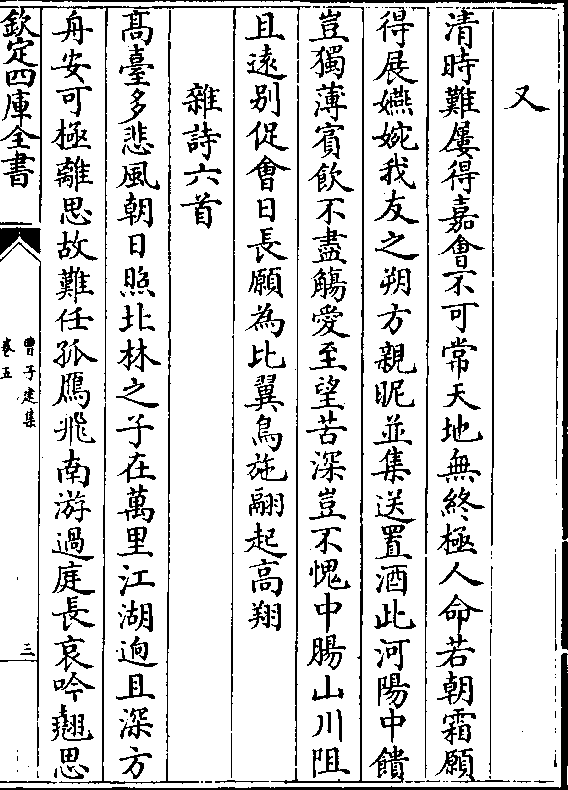 又
清時難屢得嘉㑹不可常天地無終極人命若朝霜願
得展嬿婉我友之朔方親昵並集送置酒此河陽中饋
豈獨薄賓飲不盡觴愛至望苦深豈不愧中腸山川阻
且逺别促㑹日長願為比翼鳥施翮起高翔
雜詩六首
髙臺多悲風朝日照北林之子在萬里江湖逈且深方
舟安可極離思故難任孤鴈飛南游過庭長哀吟翹思
欽定四庫全書
曹子建集
卷五
三